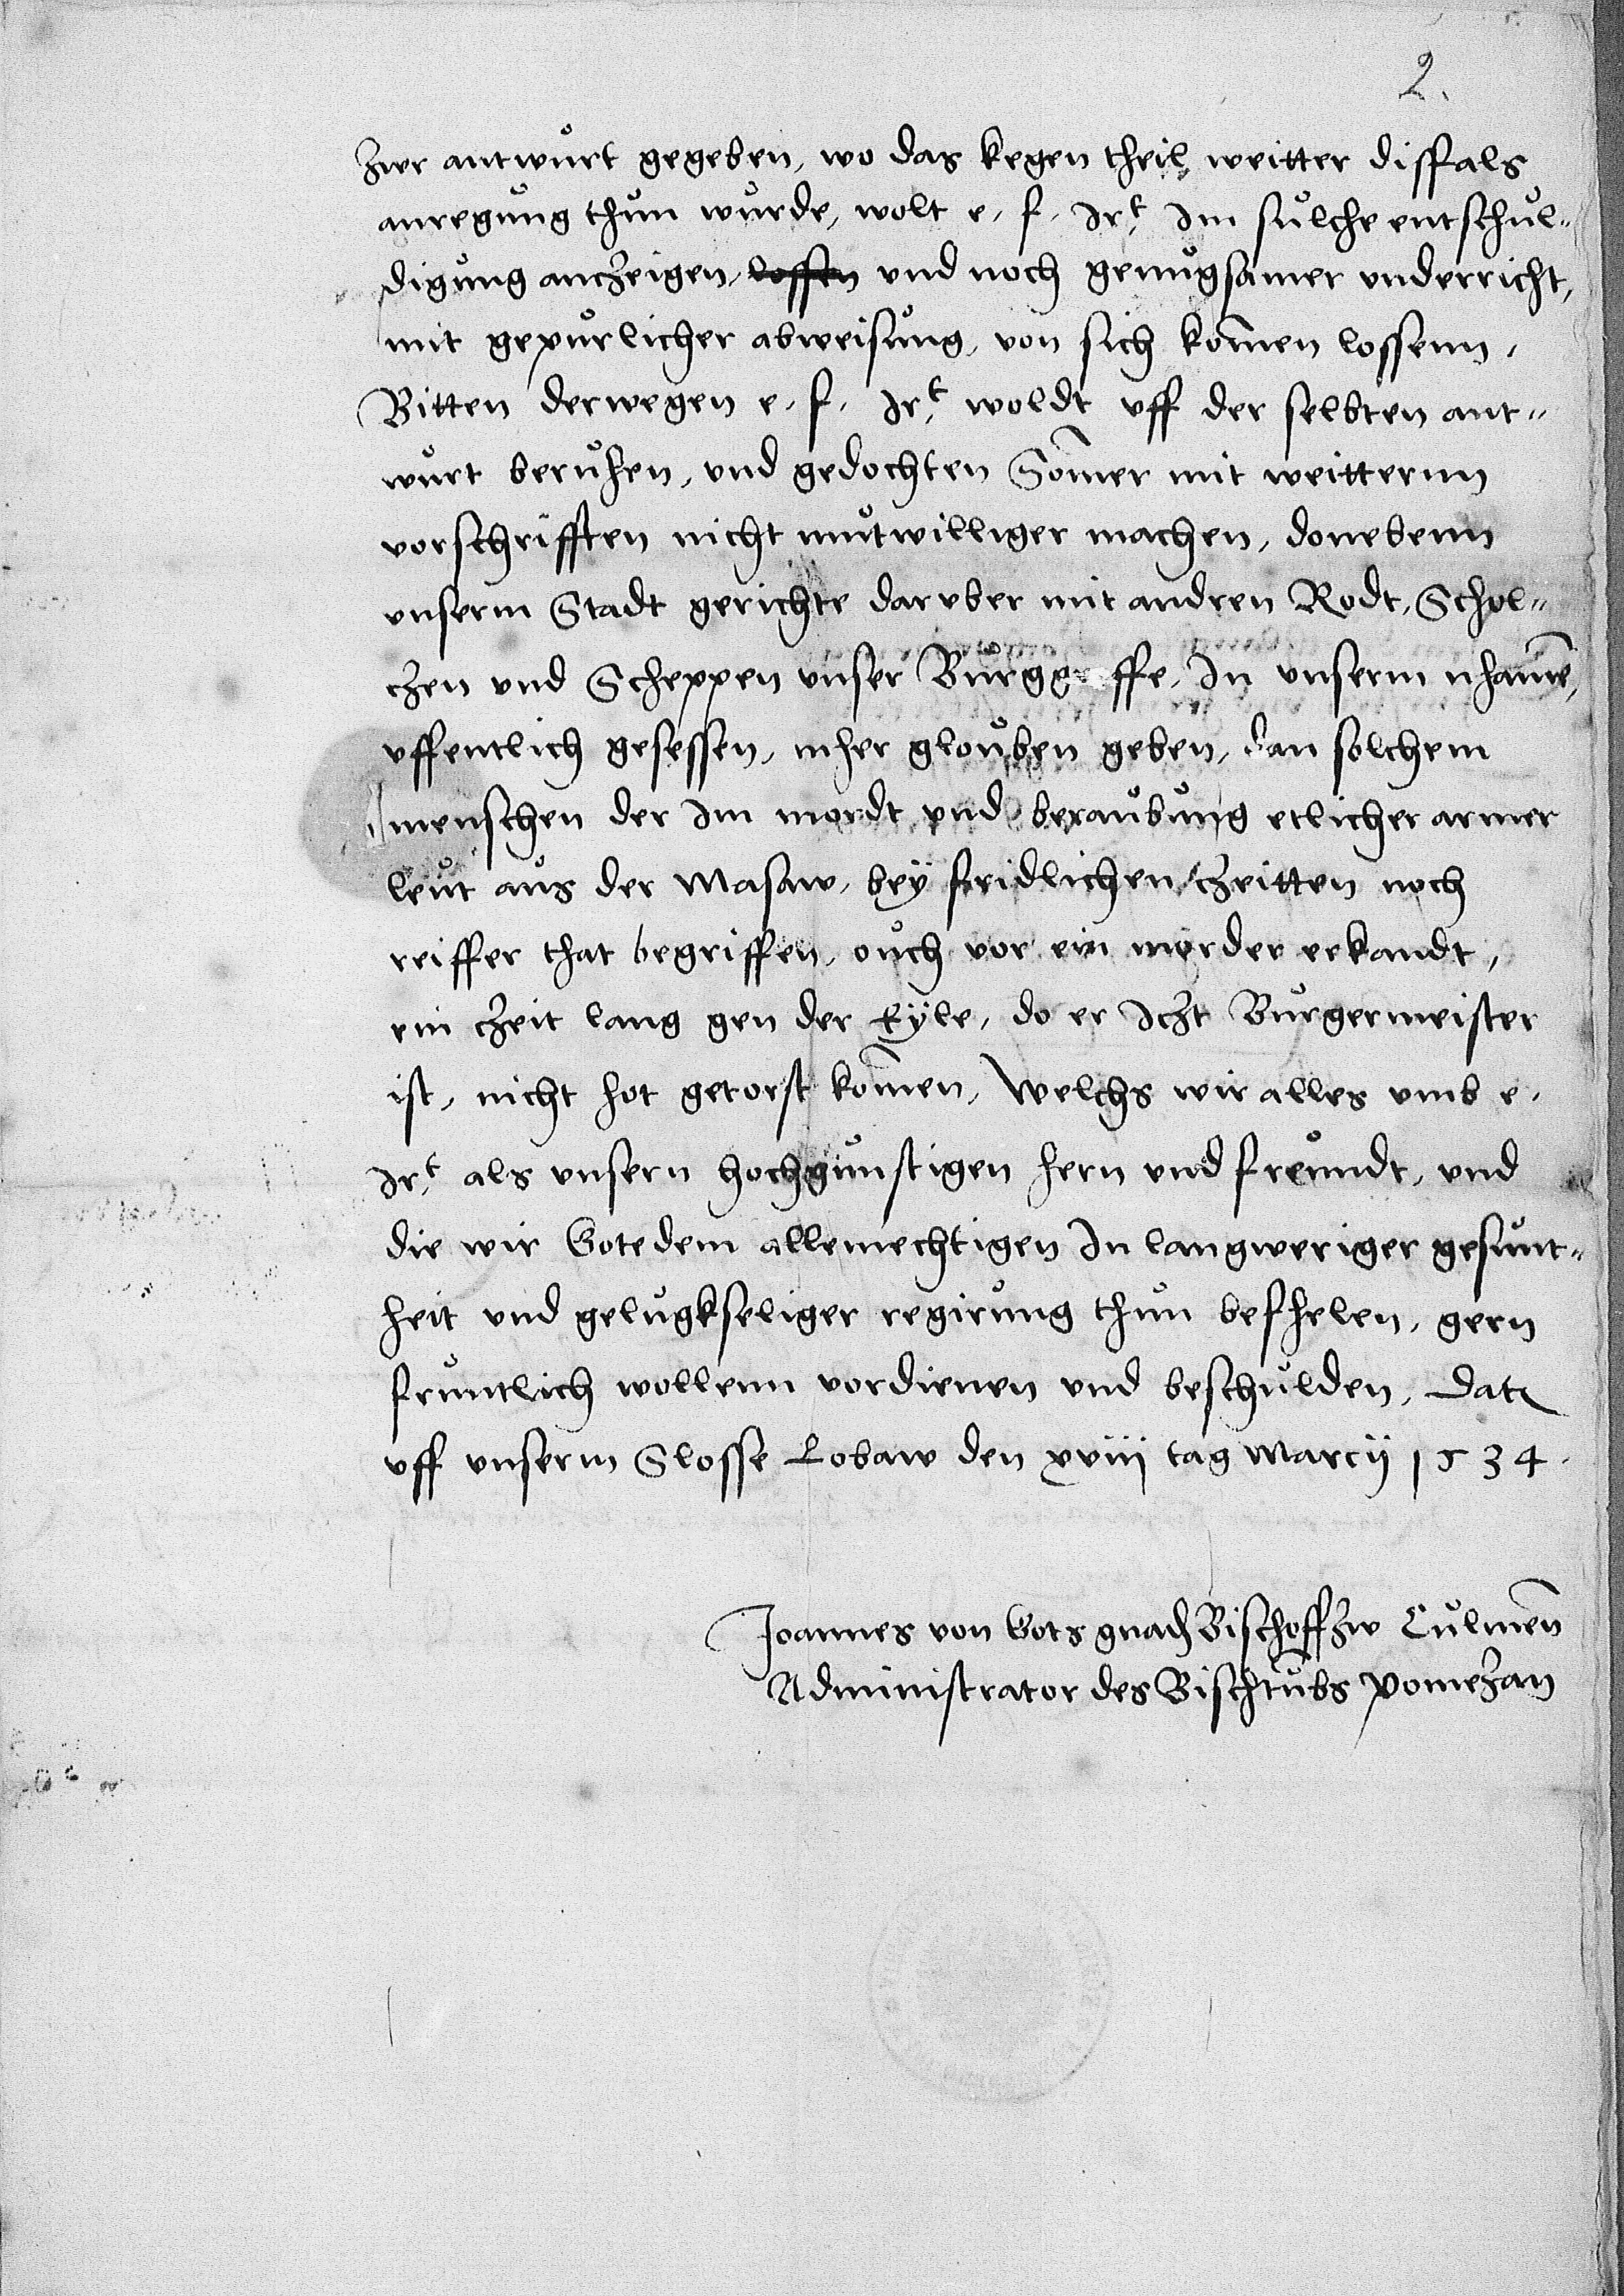 2.
zwr antwůrt gegeben, wo das kegen theil weitter diffals
anregůng thůn wůrde, wolt e. f. Jrt. Jm sůlche entschůl„
digůng anczeigen, lossen vnd noch genůgsamer vnderricht,
mit gepůrlicher abweisůng, von sich kom̄en lossenn,
Bitten derwegen e. f. Jrt. woldt vff der selbten ant„
wůrt berůhen, vnd gedochten Som̄er mit weitternn
vorschrifften nicht můtwilliger machen, donebenn
vnserm Stadt gerichte darvber mit andren Rodt, Schol„
czen vnd Scheppen vnser Bůrggr ffe, Jn vnserm nham̄e,
vffentlich gesessen, mher gloůben geben, dan solchem
menschen der Jm mordt vnd beraůbůng etlicher armer
leůt aůs der Masaw, beÿ fridlichen czeitten noch
reiffer that begriffen, oůch vor ein morder erkandt,
ein czeit lang gen der Eÿle, do er Jczt Bůrgermeister
ist, nicht hot getorst kom̄en, Welchs wir alles vmb e.
Jrt. als vnsern hochgůnstigen hern vnd freůndt, vnd
die wir Gote dem allemechtigen Jn langweriger gesůnt„
heit vnd gelůgkseliger regirůng thůn befhelen, gern
frůntlich wollenn vordienen vnd beschůlden, Dat
vff vnserm Slosse Lobaw den xviij tag Marcij 1534.
Joannes von Gots gnad Bischoff zw Cůlmen̄
Administrator des Bischtůbs Pomezan